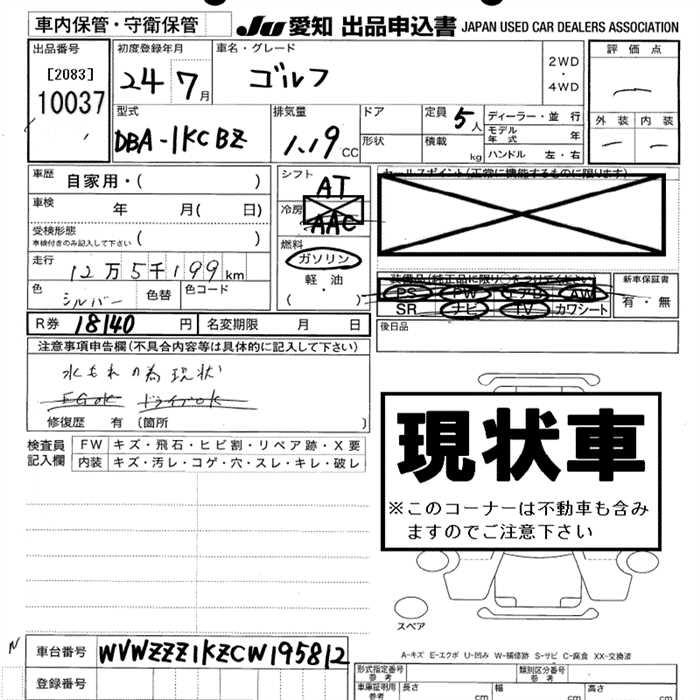 車内保管・守衛保管
JU 愛知 出品申込書 JAPAN USED CAR DEALERS ASSOCIATION
出品番号 初度登録年月 車名・グレード 2WD・4WD 評価点
[2083]
10037
24 7月 ゴルフ
外装 内装
型式 排気量 ドア 定員 5人 ディーラー・並行
DBA-1KCBZ 1.19 CC 形状 積載 kg モデル年式 年
ハンドル 左・右
車歴 自家用・( ) シフト AT セールスポイント(正常に機能するものに限ります)
車検 年 月( 日) 冷房 AAC
受検形態 車検付きのみ記入して下さい ( ) 燃料 ガソリン
走行 12万5千199km 軽油
色 シルバー 色替 色コード ( ・ )
装備品(純正品に限り○をつけてください) 新車保証書
PS PW ナデロ AW 有・無
SR ナビ TV カワシート
R券 18140円 名変期限 月 日 後日品
注意事項申告欄(不具合内容等は具体的に記入して下さい)
水もれの為現状
EGOK ドライブOK
修復歴 有 (箇所 )
現状車
※このコーナーは不動車も含みますのでご注意下さい
検査員記入欄 FW キズ・飛石・ヒビ割・リペア跡・X要
内装 キズ・汚レ・コゲ・穴・スレ・キレ・破レ
スペア
A-キズ E-エクボ U-凹み W-補修跡 S-サビ C-腐食 XX-交換済
N 車台番号 WVWZZZ1KZCW195812
登録番号
形式指定番号 参考 類別区分番号 参考
車庫証明用 参考 長さ cm 幅 cm 高さ cm